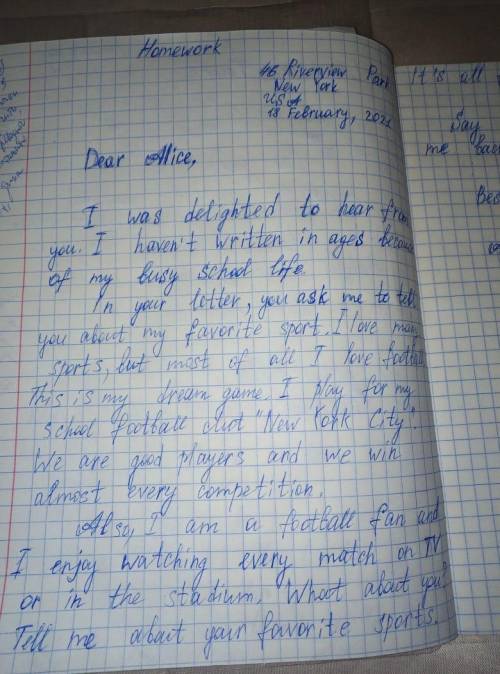 Homework
46 Riverview Park
New York
USA
18 February, 2021
Dear Alice,
I was delighted to hear from
you. I haven't written in ages because
of my busy school life.
In your letter, you ask me to tell
you about my favorite sport. I love many
sports, but most of all I love football.
This is my dream game. I play for my
school football club "New York City".
We are good players and we win
almost every competition.
Also, I am a football fan and
I enjoy watching every match on TV
or in the stadium. What about you?
Tell me about your favorite sports.
It's all
Say
me back
Bes